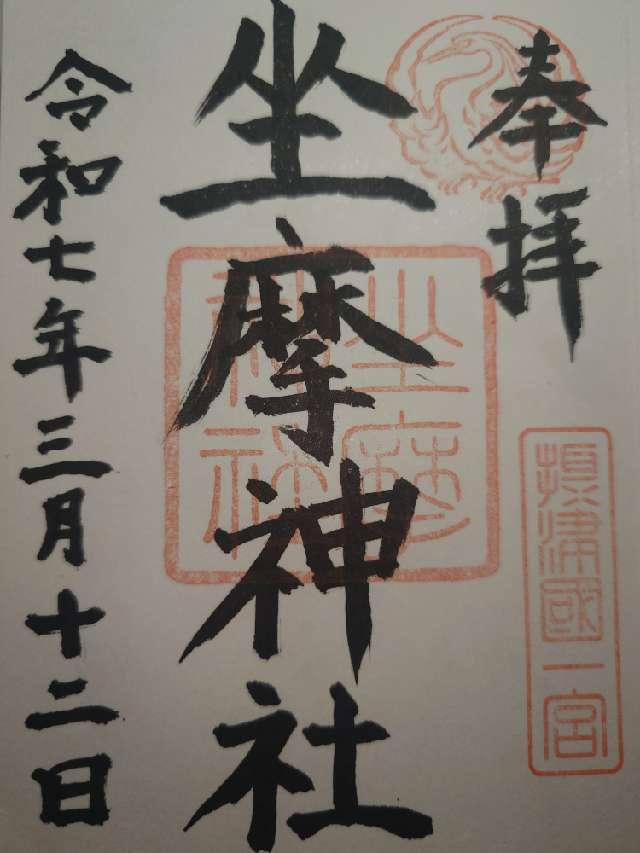 奉拝
摂津國一宮
坐摩神社
坐摩神社
令和七年三月十二日